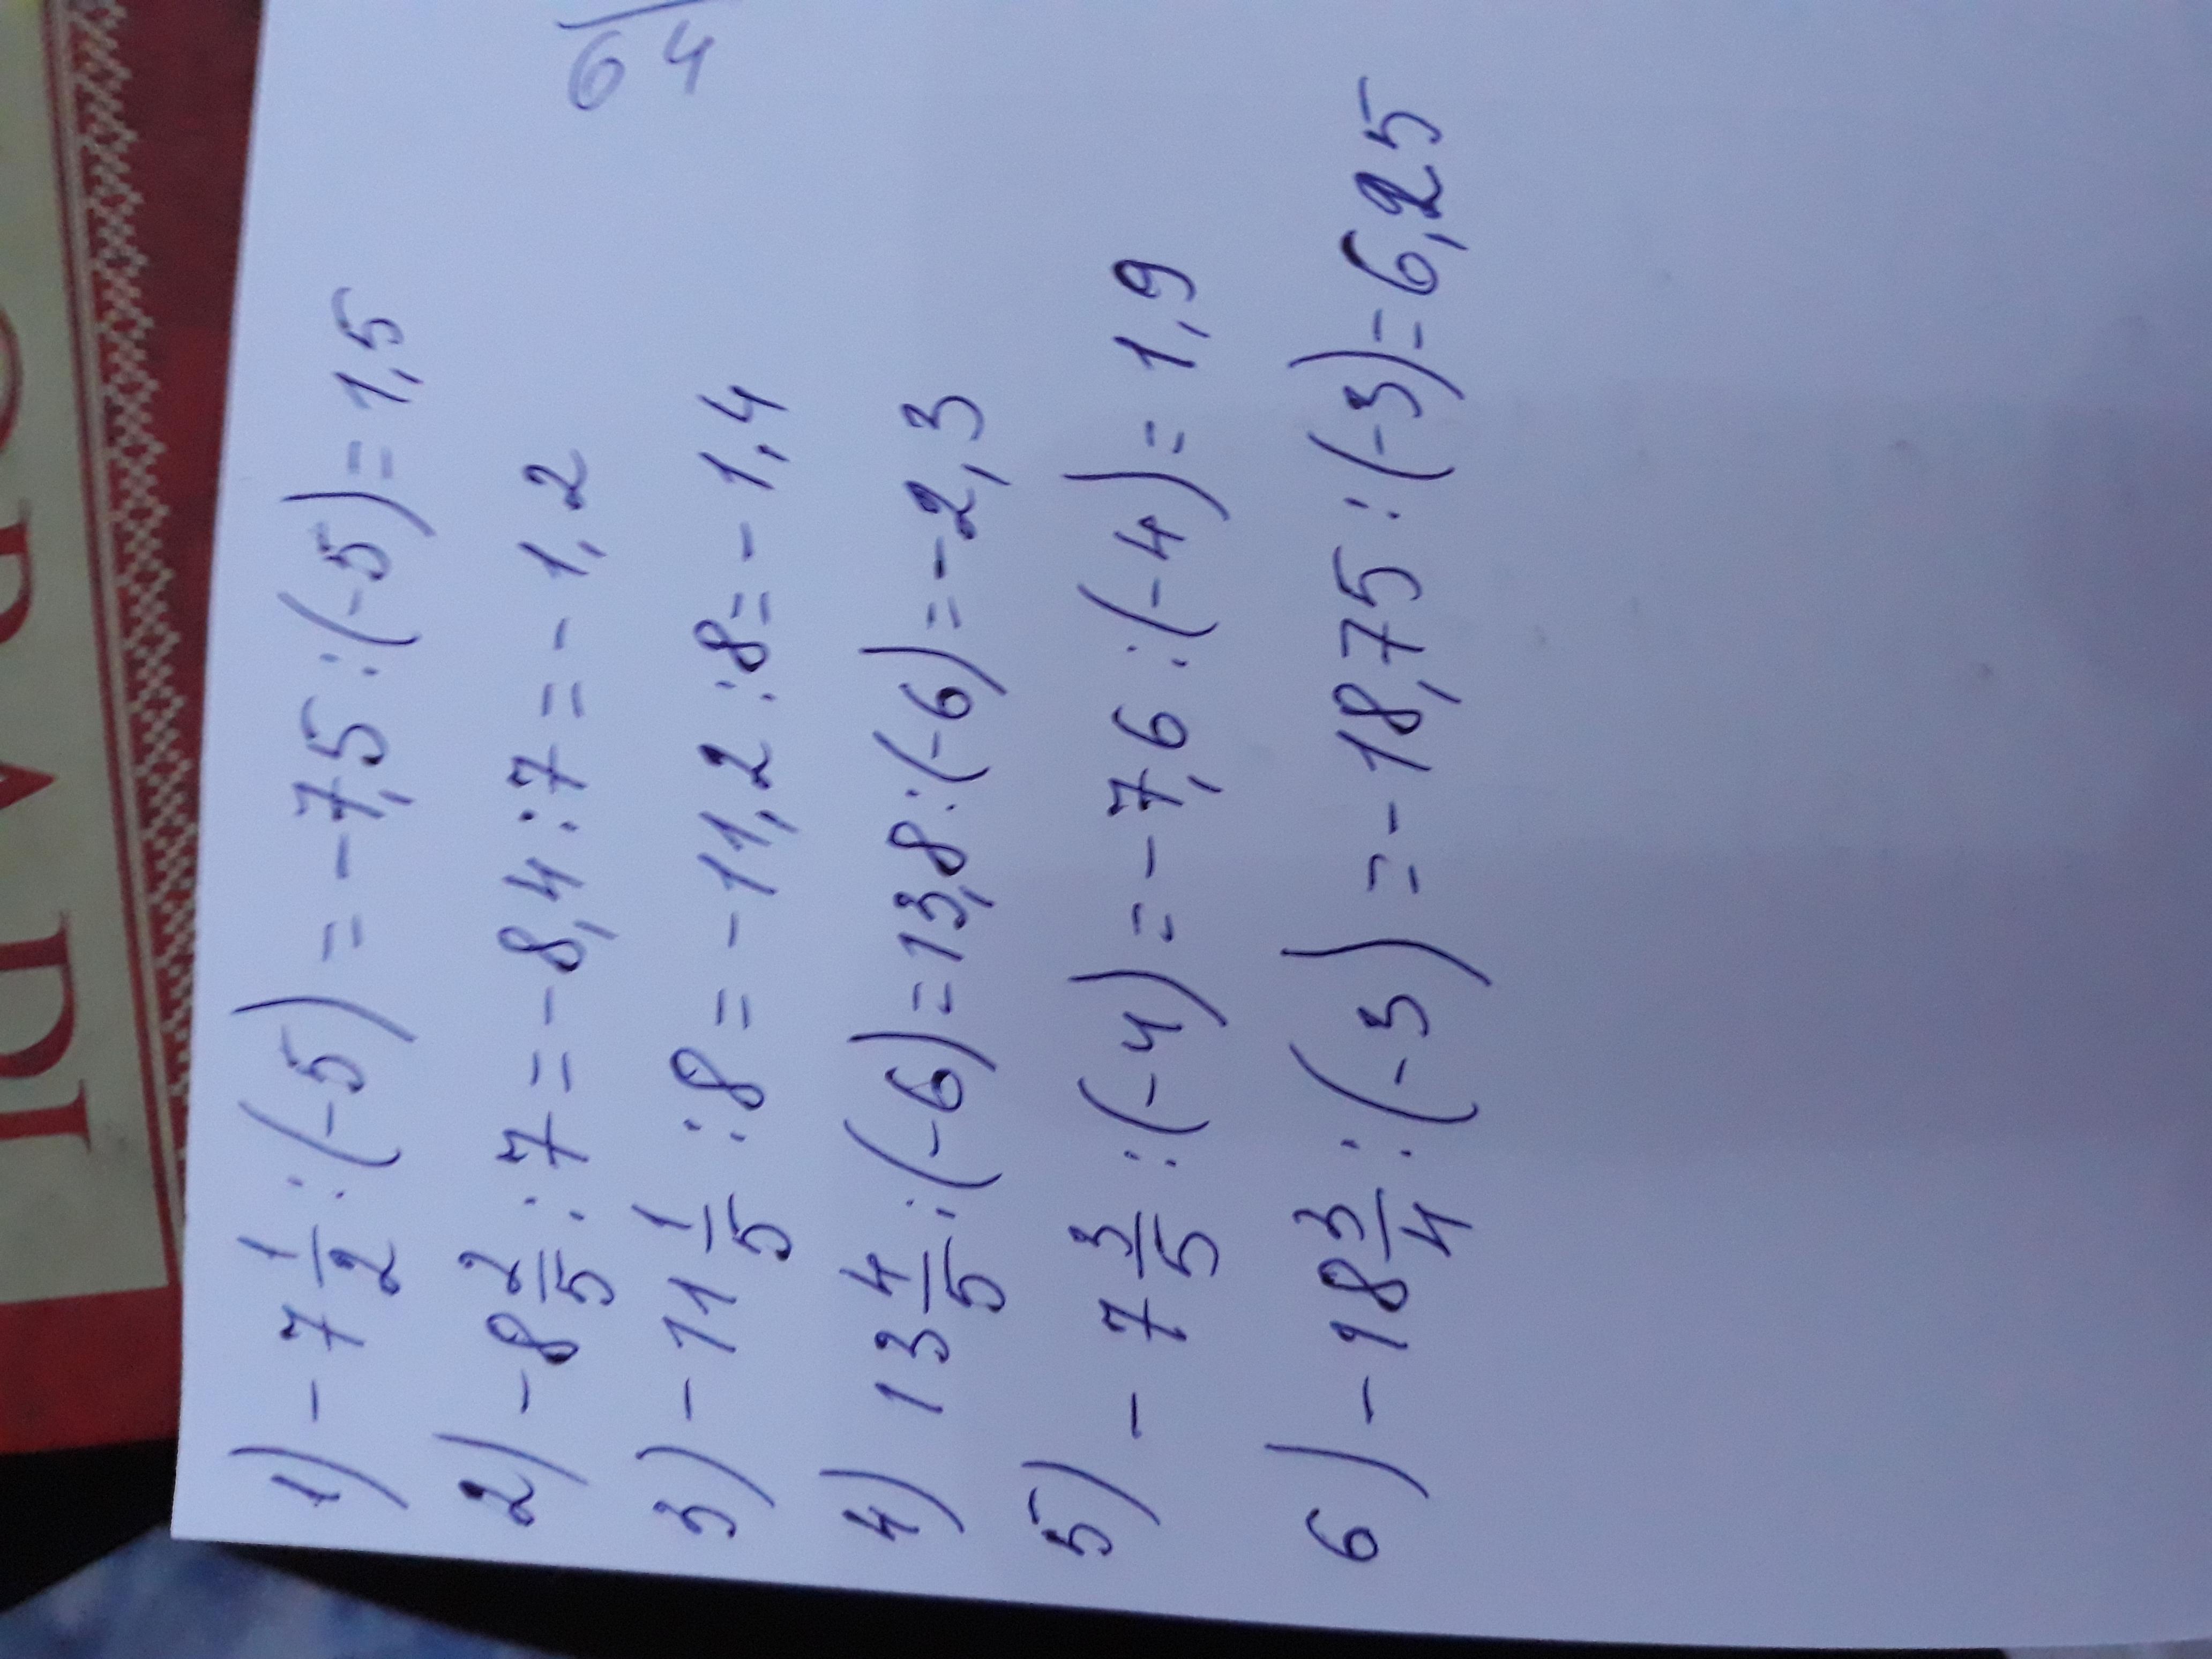 64
1) -7 1/2 : (-5) = -7,5 : (-5) = 1,5
2) -8 2/5 : 7 = -8,4 : 7 = -1,2
3) -11 1/5 : 8 = -11,2 : 8 = -1,4
4) 13 4/5 : (-6) = 13,8 : (-6) = -2,3
5) -7 3/5 : (-4) = -7,6 : (-4) = 1,9
6) -18 3/4 : (-3) = -18,75 : (-3) = 6,25